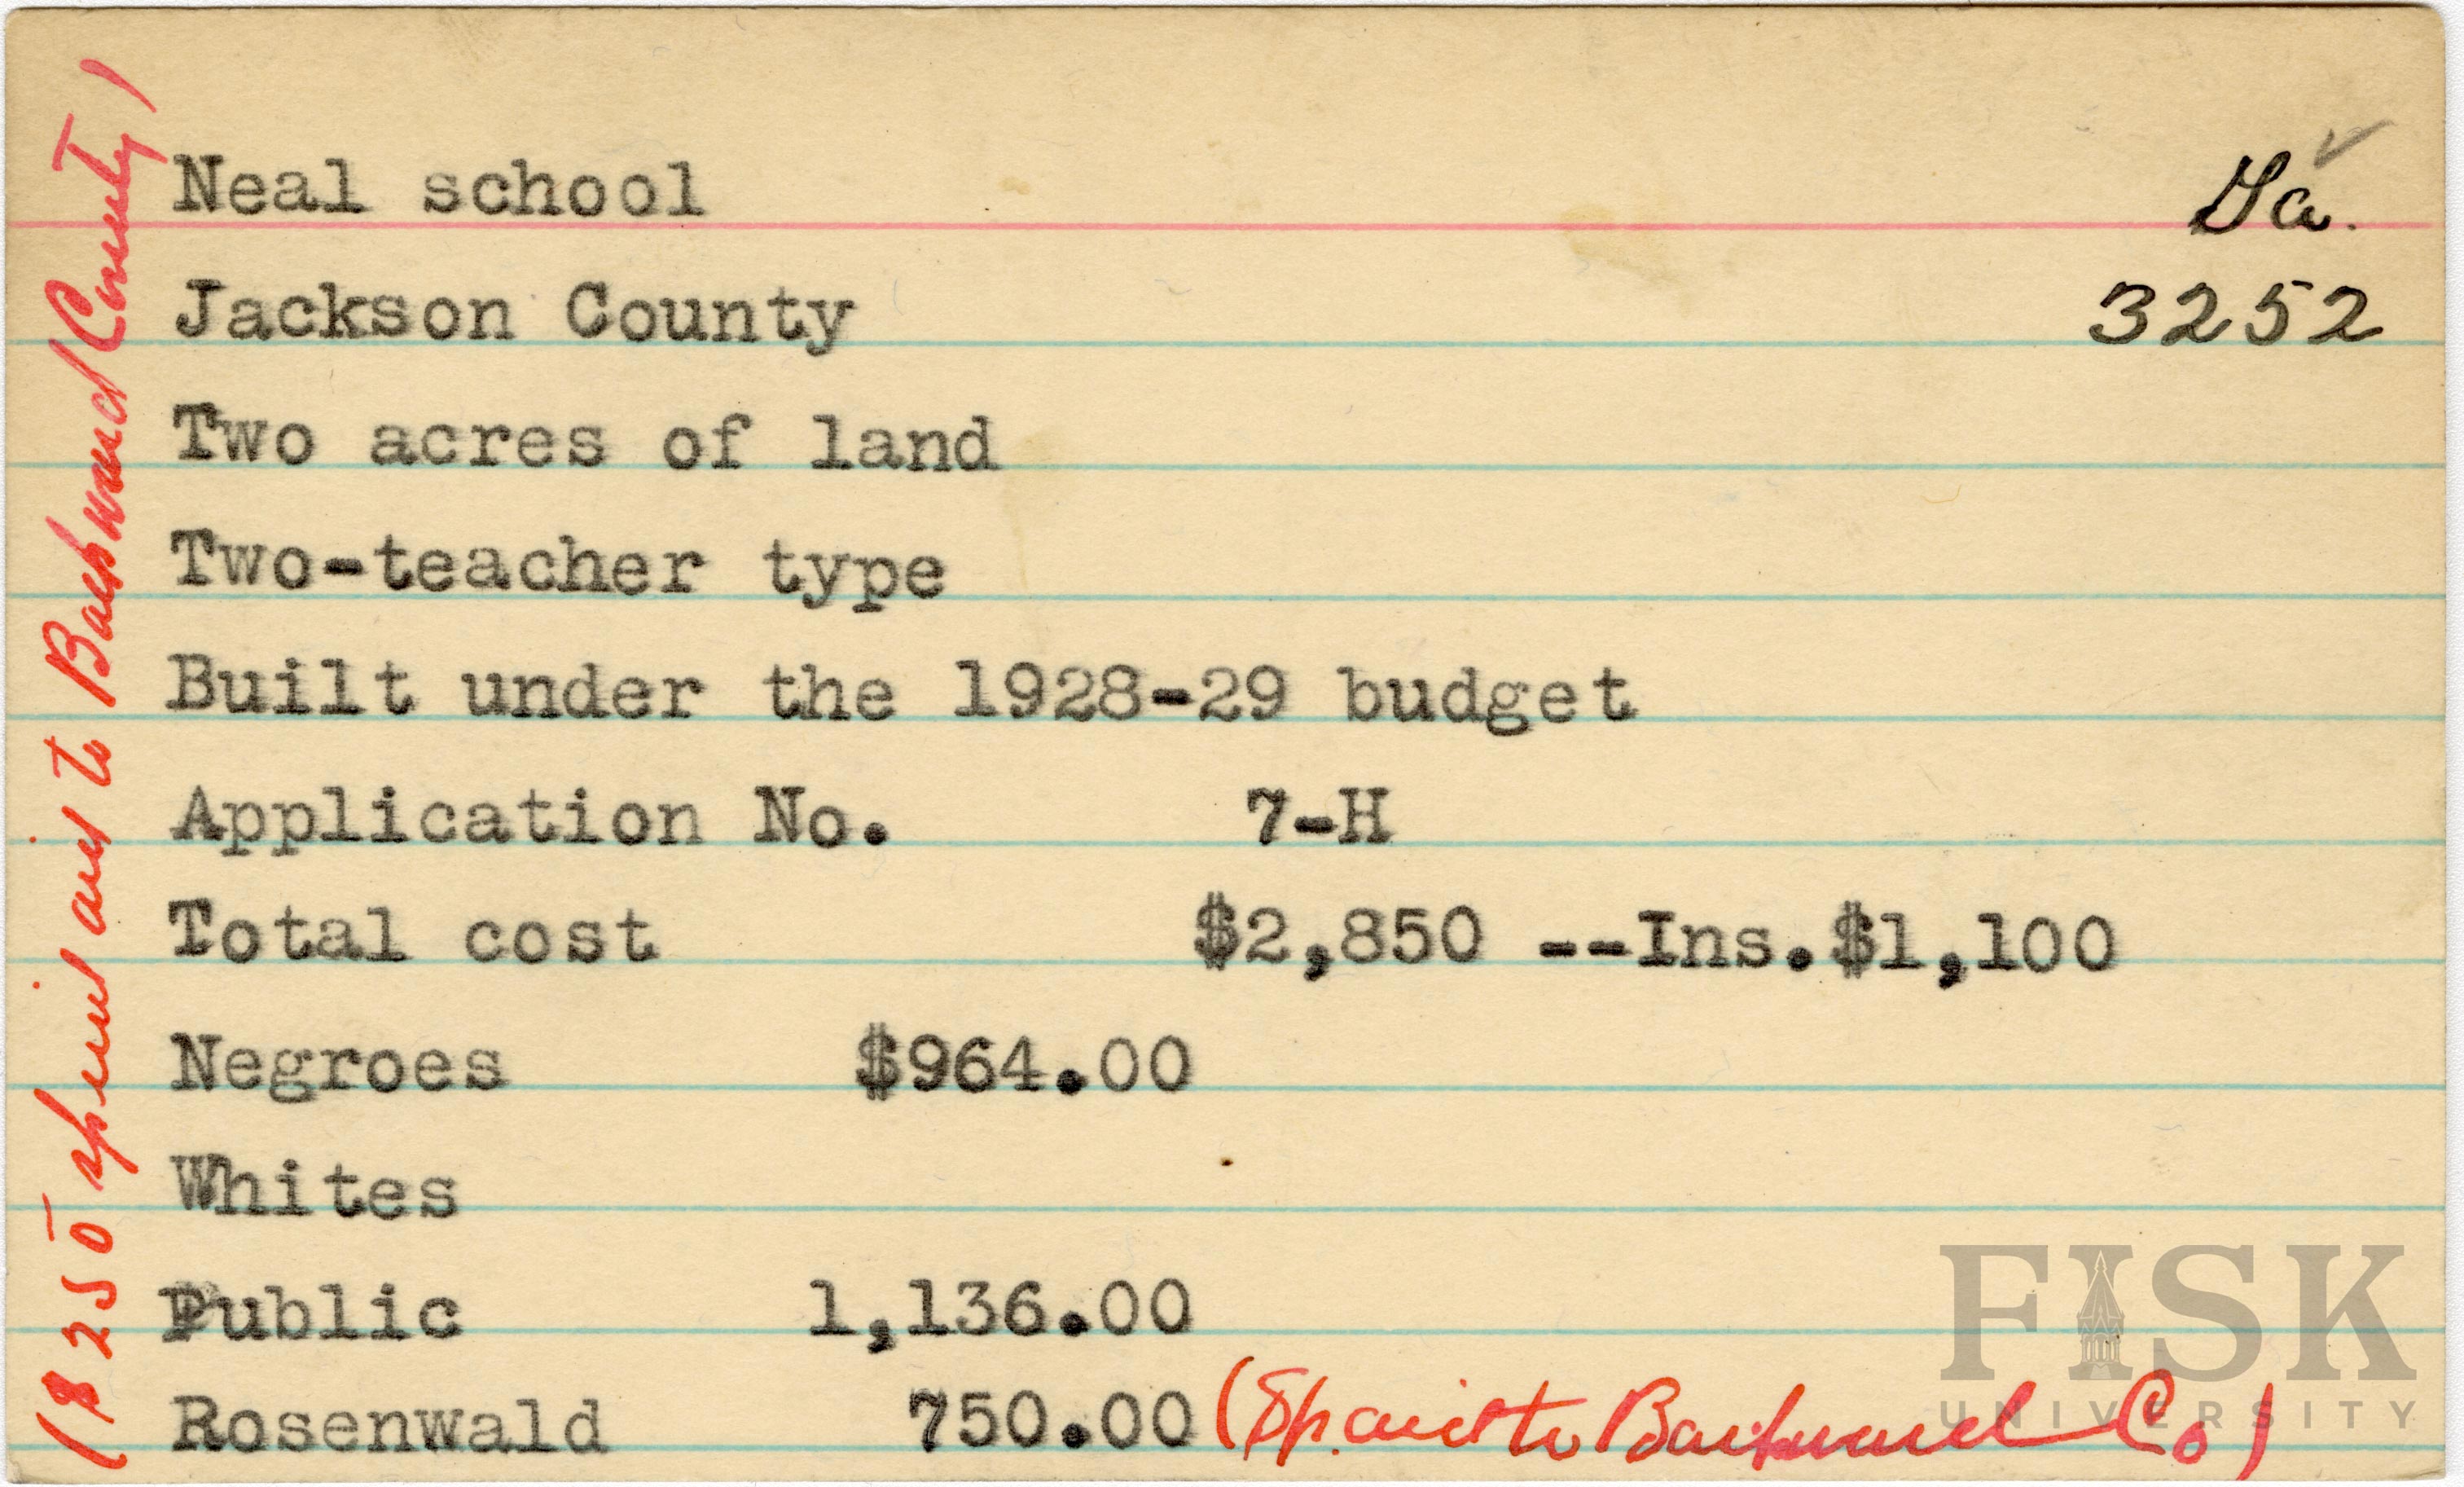 Neal school
Ga.
Jackson County
3252
Two acres of land
Two-teacher type
Built under the 1928-29 budget
Application No. 7-H
Total cost $2,850 --Ins.$1,100
Negroes $964.00
Whites
Public 1,136.00
Rosenwald 750.00 (Sp. aid to Backward Co)
($250 special aid to Backward County)
FISK
UNIVERSITY